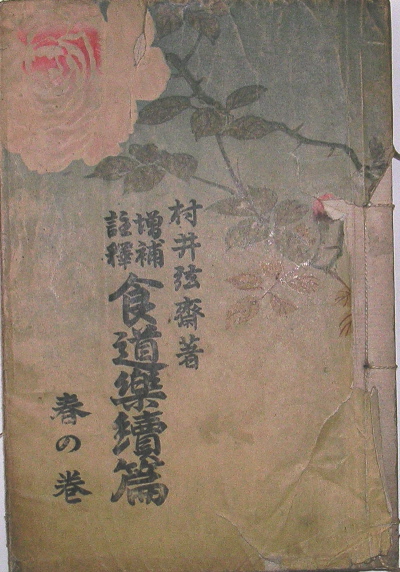 村井弦齋著
增補
註釋
食道樂續篇
春の巻